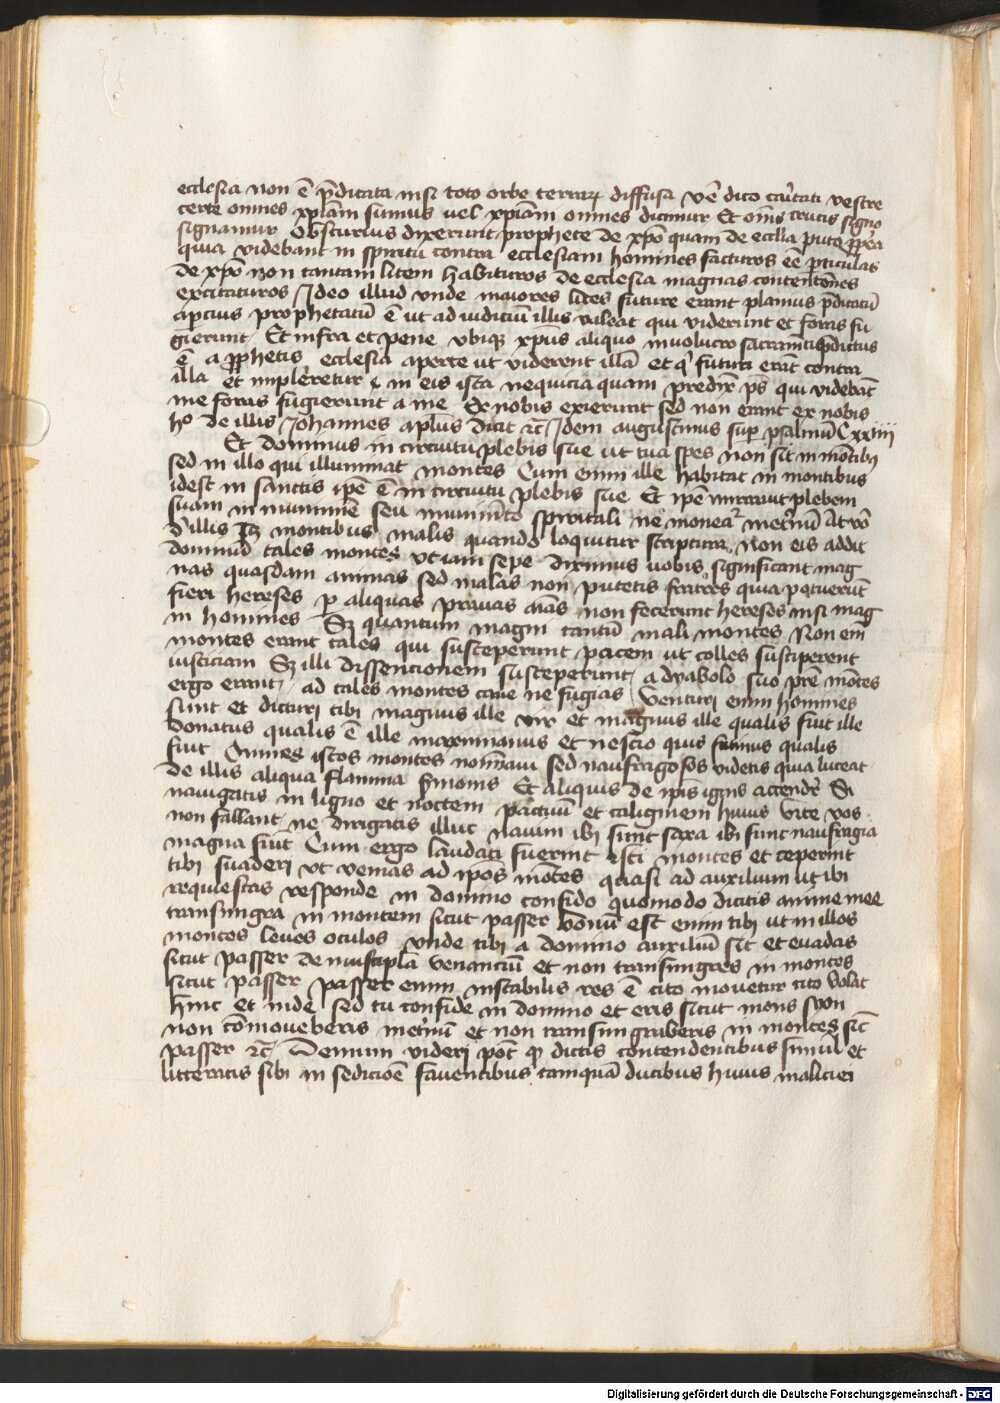 ecclesia non ē p̄dicata nisi toto orbe terrarꝝ diffusa Vē dico c̄itati vestre
certe omnes xp̄iani sumus vel xp̄iani omnes dicimur Et om̄s crucis signo
signamur Obscurius dixerunt prophete de xp̄o quam de ecc̄lia puto ꝓpterea
quia videbant in spiritu contra ecclesiam homines facturos eē ꝑticulas
de xp̄o Non tantam litem habituros de ecclesia magnas contentōnes
excitaturos Ideo illud vnde maiores lites future erant planius p̄dicatū
ap̄cius prophetatū ē ut ad iudiciū illis valeat qui viderunt et foras fu
gierunt Et infra et pene vbiqꝫ xp̄us aliquo inuolucro sacramēti p̄dictus
ē a ꝓphetis ecclesia aperte ut viderent illā et q̄ futuri erāt contra
illa et impleretur in eis ista nequicia quam predixit ps̄ qui videbāt
me foras fugierunt a me Ex nobis exierunt sed non erant ex nobis
hoc de illis Johannes aplūs dicit ⁊c̄ Idem augustinus sup̄ psalmū Cxxiiii
Et dominus in circuitu plebis sue ut tua spes non sit in mōtibꝫ
sed in illo qui illuminat montes Cum enim ille habitat in montibus
idest in sanctis ip̄e ē in circuitu plebis sue Et ip̄e muravit plebem
suam in munimine seu munimēto spirituali ne moneat᷑ in et̄nū at v̄o
d̄ illis montibus malis quando loquitur scriptura Non eis addit
dominū tales montes ut iam sepe diximus uobis significant mag
nas quasdam animas sed malas non putetis fratres quia potuerūt
fieri hereses ꝑ aliquas pravas aīas non fecerunt hereses nisi mag
ni homines Sꝫ quantum magni tantū mali montes Non em̄
montes erant tales qui susceperunt pacem ut colles susciperent
iusticiam Sꝫ illi dissentionem susceperunt a dyabolo suo pr̄e mōtes
ergo erant ad tales montes caue ne fugias Venturi enim homines
sunt et dicturi tibi magnus ille vir et magnus ille qualis fuit ille
donatus qualis ē ille maximianus et nescio quis fotinus qualis
fuit Omnes istos montes nominaui sed naufragosos videtis quia luceat
de illis aliqua flamma s̄monis Et aliquis de ip̄is ignis accendit᷑ Si
nauigatis in ligno et noctem patimī et caliginem huius vite vos
non fallant ne dirigatis illuc nauim ibi sunt saxa ibi sunt naufragia
magna fiut Cum ergo laudati fuerint isti montes et ceperint
tibi suaderi ut venias ad ip̄os mōtes quasi ad auxilium ut ibi
requiescas responde in domino confido quomodo dicitis anime mee
transmigra in montem sicut passer bonū est enim tibi ut in illos
montes leues oculos vnde tibi a domino auxiliū sit et euadas
sicut passer de muscipla venanciū et non transmigres in montes
sicut passer passer enim instabilis res ē cito mouetur cito volat
hinc et inde sed tu confide in domino et eris sicut mons syon
non cōmoueberis in et̄nū et non transmigraberis in montes sic̄
passer ⁊c̄ Demum videri pōt ꝙ dictis contendentibus simul et
litteratis sibi in sedicioē faventibus tamquā ducibus huius maliciei
Digitalisierung gefördert durch die Deutsche Forschungsgemeinschaft - DFG